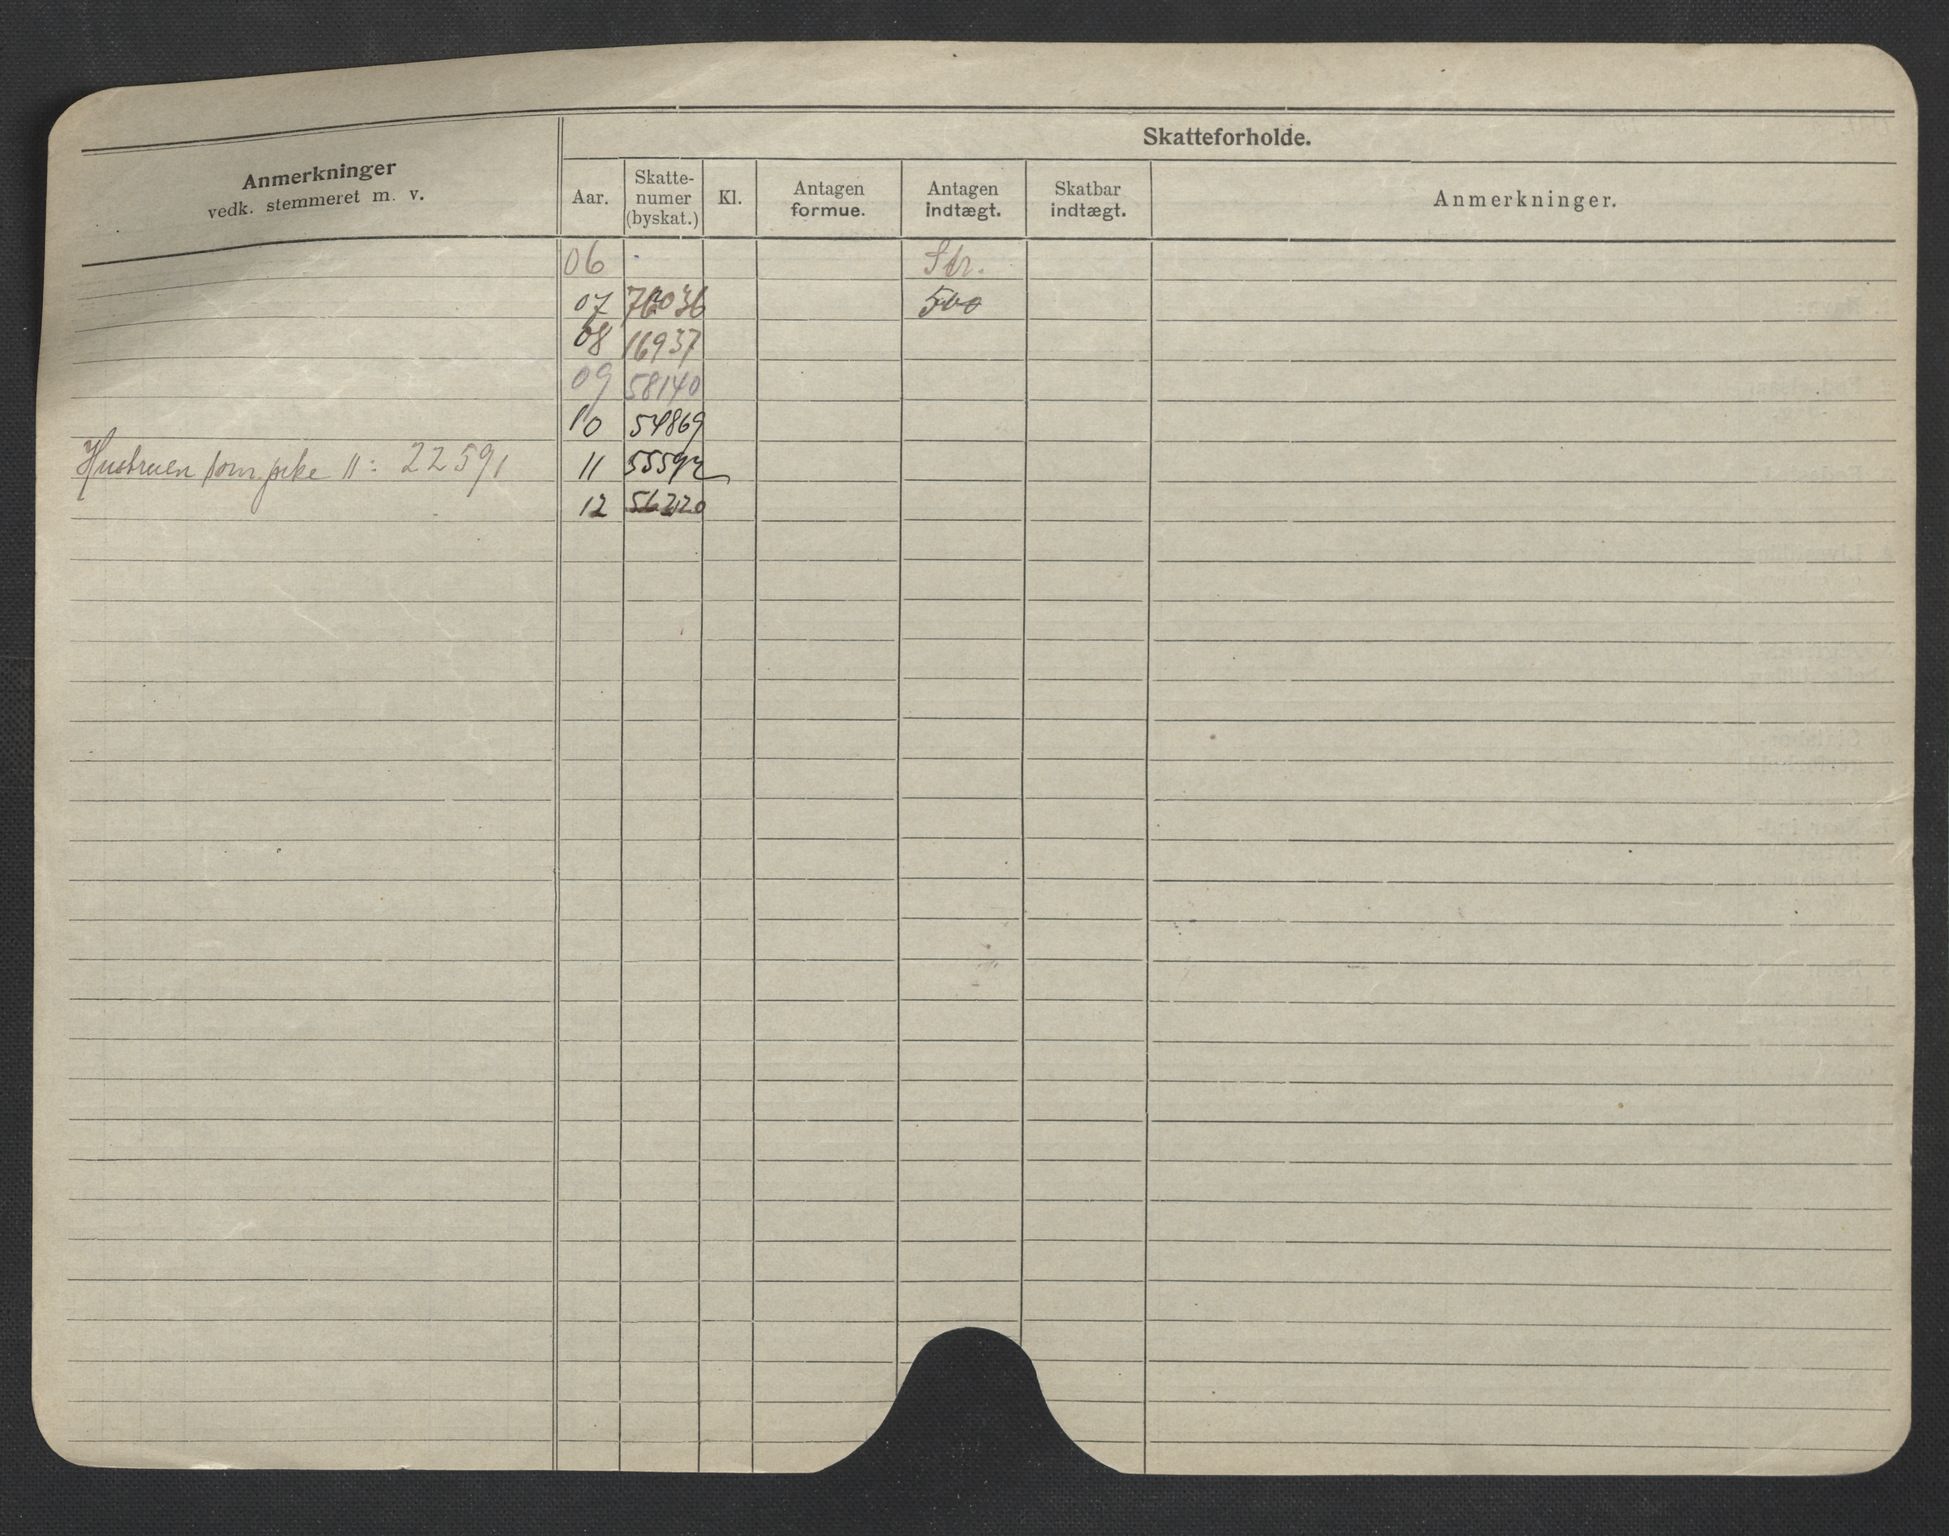 Skatteforholde.
Anmerkninger
vedk. stemmeret m. v.
Aar.
Skatte-
numer
(byskat.)
Kl.
Antagen
formue.
Antagen
indtægt.
Skatbar
indtægt.
Anmerkninger.
06 Str.
07 76036 500
08 16937
09 58140
10 54869
Hustruen som pike 11: 22591 11 55592
12 56220